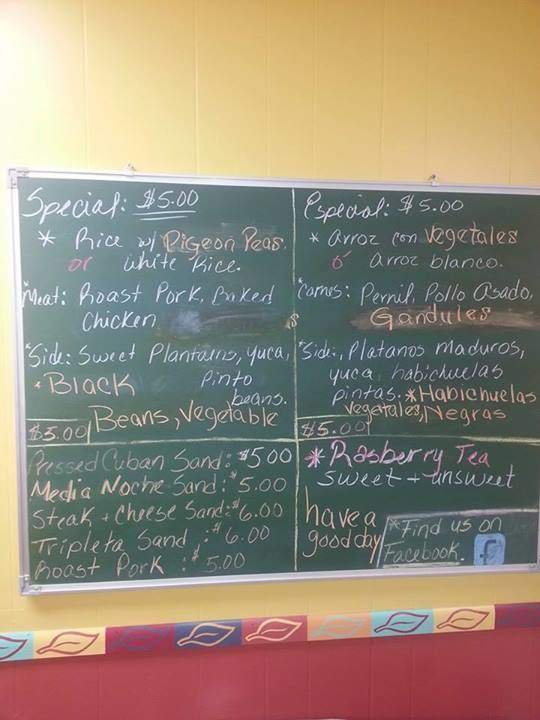 Special: $5.00
* Rice w/ Pigeon Peas.
or white Rice.
Meat: Roast Pork, Baked
Chicken
*Side: Sweet Plantains, yuca,
* Black pinto
beans.
Beans, Vegetable
$5.00
Especial: $5.00
* Arroz con Vegetales
ó arroz blanco.
*Carnes: Pernil, Pollo Asado,
Gandules
*Side:, Platanos maduros,
yuca, habichuelas
pintas. *Habichuelas
Vegetales, Negras
$5.00
Pressed Cuban Sand: $5.00
Media Noche Sand: $5.00
Steak + Cheese Sand: $6.00
Tripleta Sand.: $6.00
Roast Pork: $5.00
* Rasberry Tea
Sweet + unsweet
have a
good day
*Find us on
Facebook. f